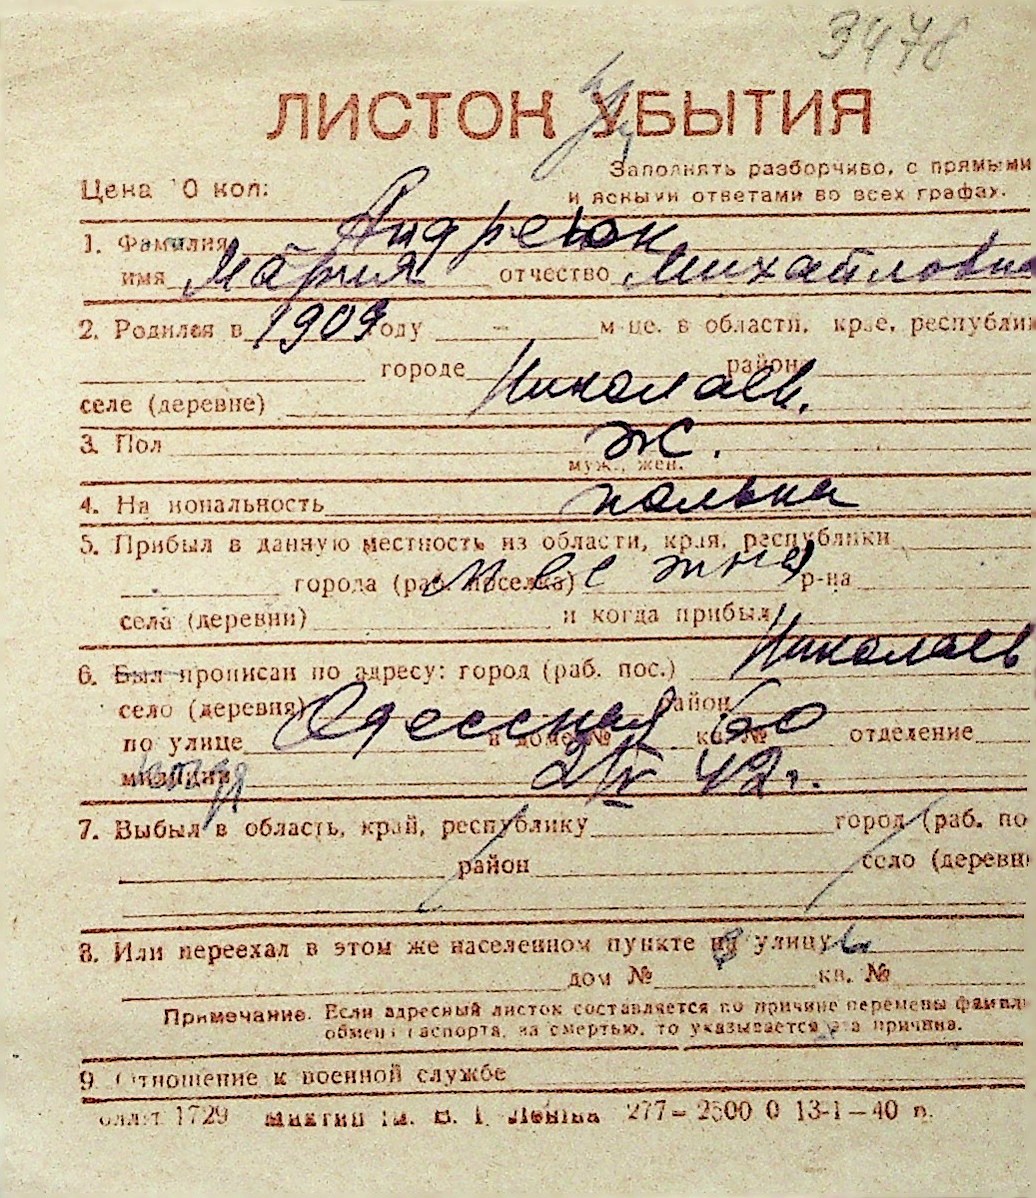 3478
ЛИСТОК УБЫТИЯ
Цена 10 коп.
Заполнять разборчиво, с прямыми
и ясными ответами во всех графах.
1. Фамилия Андреюк
имя Мария отчество Михайловна
2. Родился в 1909 году - м-це. в области, крае, республик
городе Николаев. район
селе (деревне)
3. Пол ж.
муж., жен.
4. Национальность полька
5. Прибыл в данную местность из области, края, республики
города (раб. поселка) р-на
села (деревни) и когда прибыл
6. Был прописан по адресу: город (раб. пос.) Николаев
село (деревня) район
по улице Одесская в доме № 60 кв. № отделение
милиции когда 2/IV 42 г.
7. Выбыл в область, край, республику город (раб. по
район село (деревн
8. Или переехал в этом же населенном пункте на улицу
дом № кв. №
Примечание. Если адресный листок составляется по причине перемены фамил
обмен паспорта, за смертью, то указывается эта причина.
9. Отношение к военной службе
1729 им. В. І. Леніна 277—2500 0 13-1—40 п.